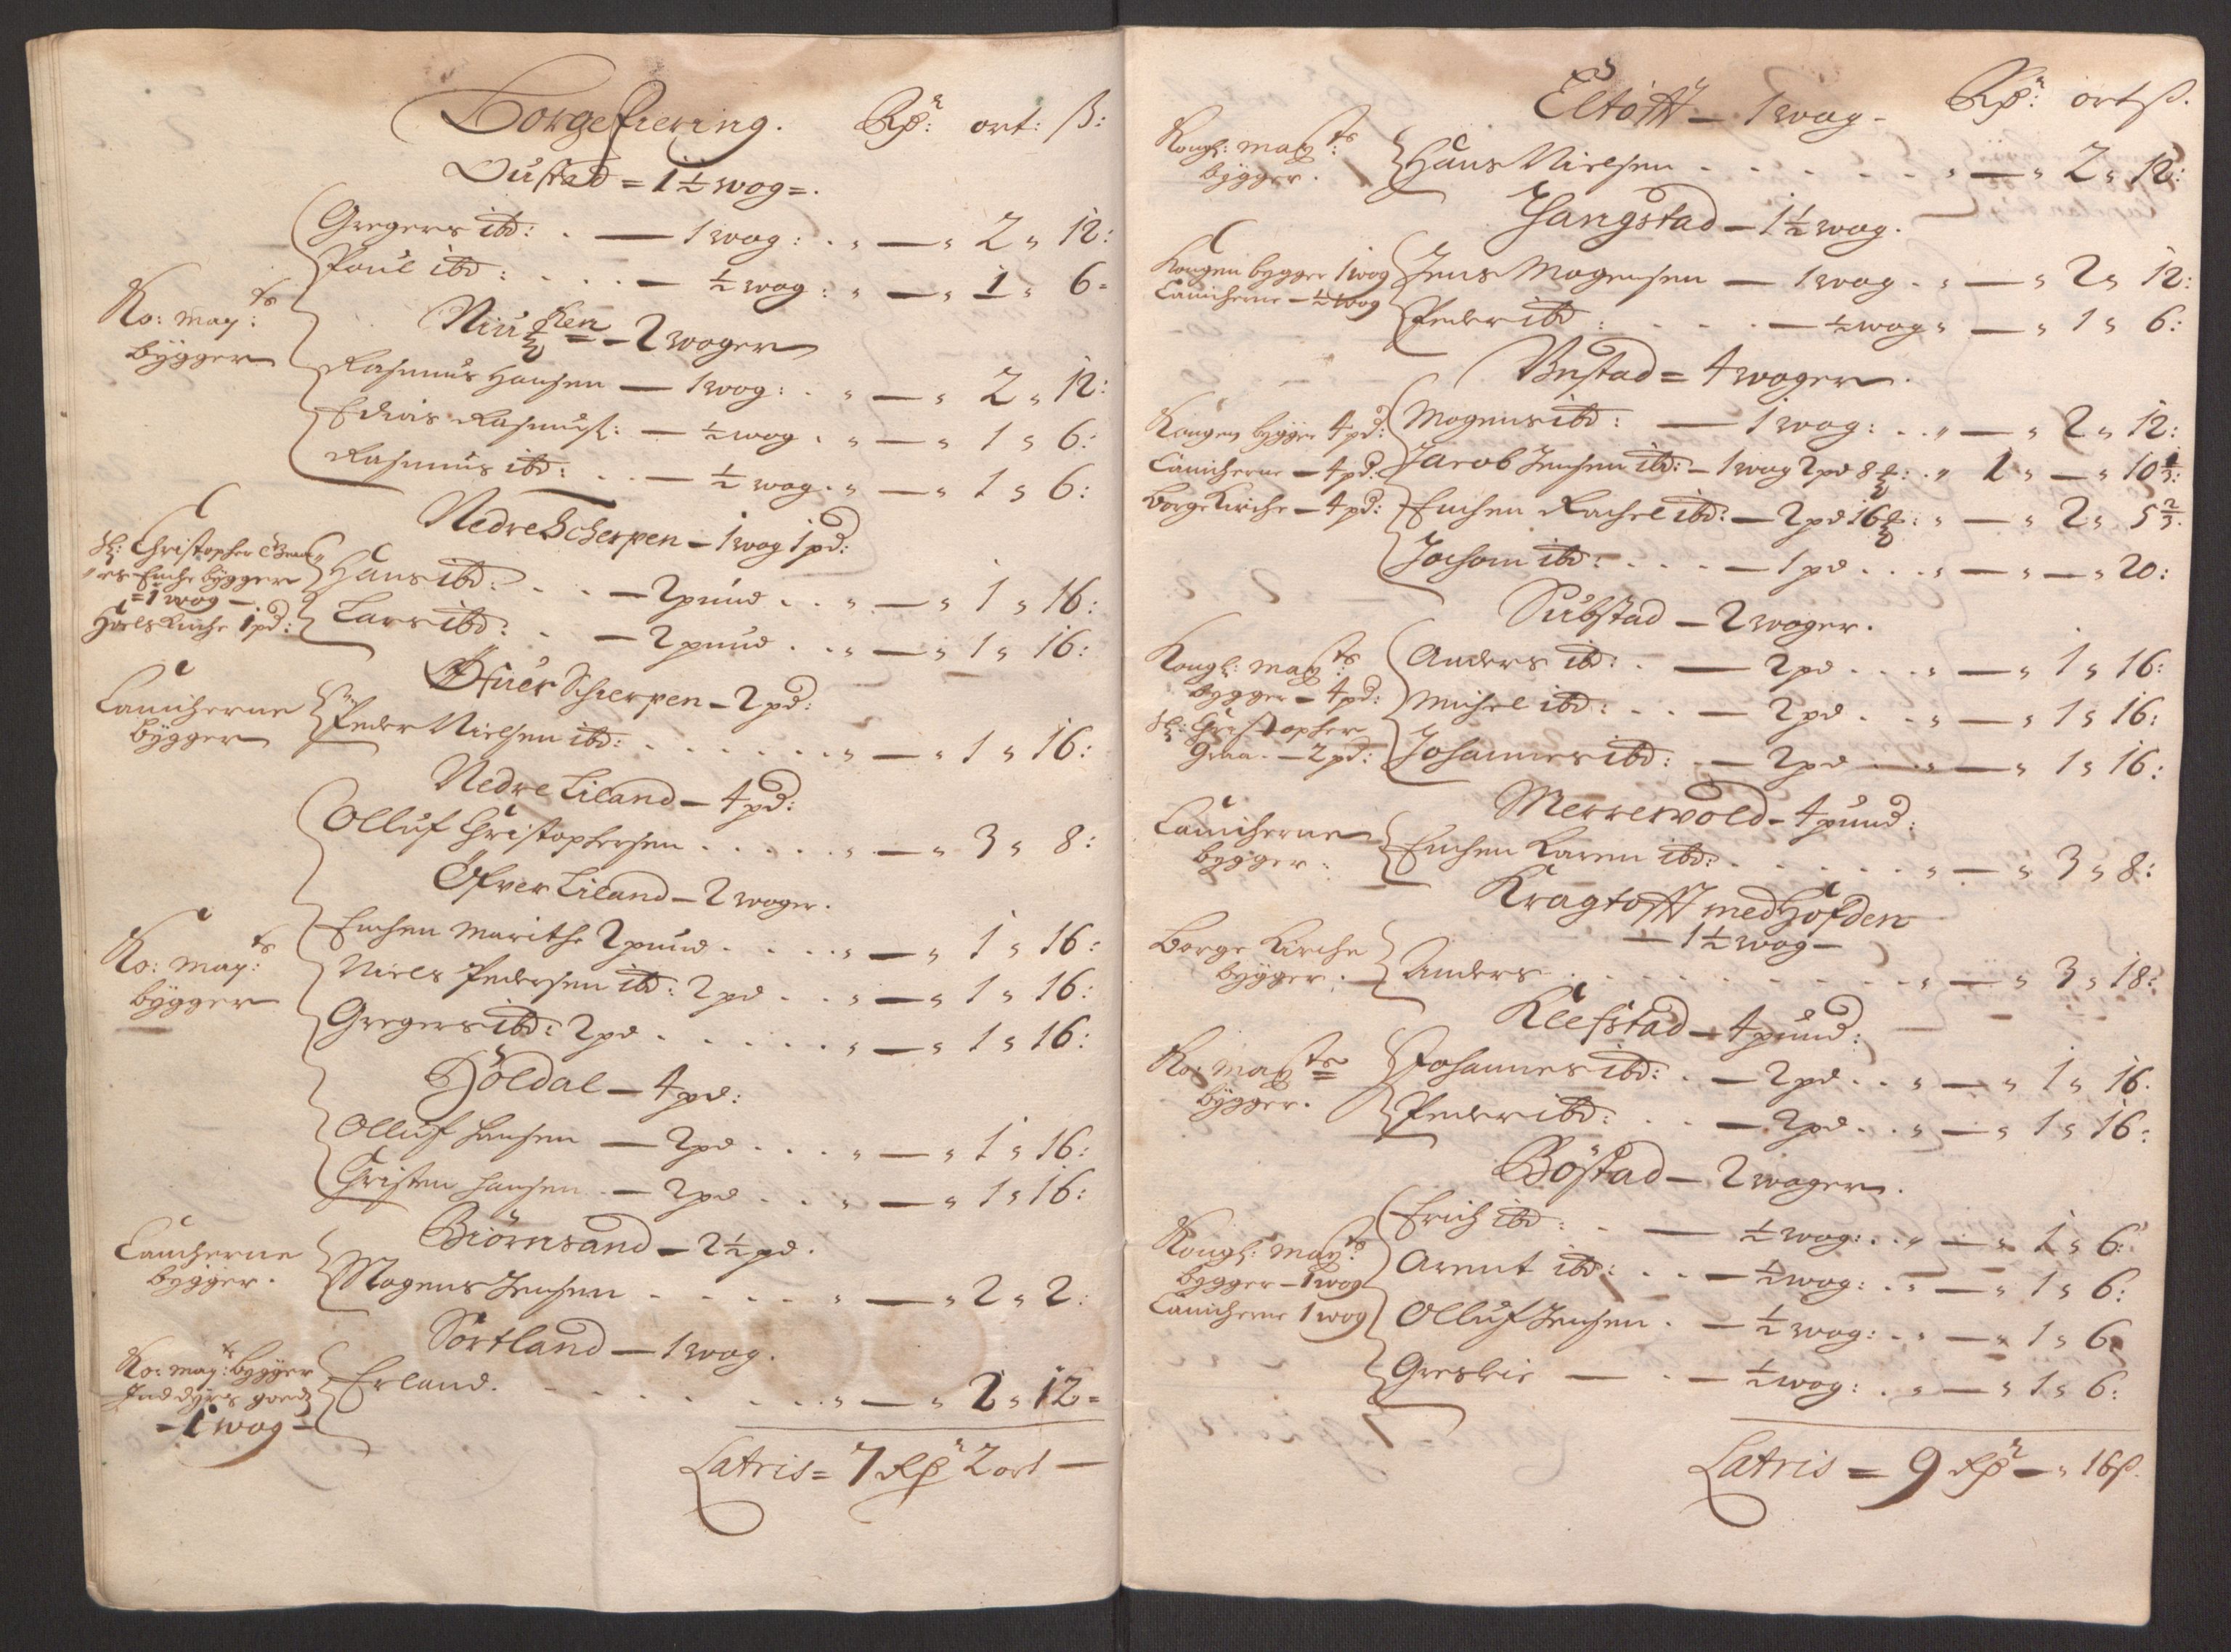 Borgefiering. Rdr: ort: ß:
Oustad = 1½ wog =.
Gregers ibd: . — 1 wog: . „ — „ 2 „ 12:
Poul ibd: . . . — ½ wog: „ — „ 1 „ 6 =
Ko: may:ts
bÿgger
— 2 woger
Rasmus Hansen — 1 wog: . „ — „ 2 „ 12:
Rasmuß: — ½ wog . „ — „ 1 „ 6:
Rasmus ibd: . . — ½ wog . „ — „ 1 „ 6:
Nedre Scherpen — 1 wog 1 pd:
Sl: Christopher
Enche bÿgger
= 1 wog —
Kirche 1 pd:
Hans ibd: . . — 2 pund . . „ — „ 1 „ 16:
Lars ibd: . — 2 pund . . „ — „ 1 „ 16:
Øfuer Schierpen — 2 pd:
Lauicherne
bÿgger
Peder Nielsen ibd: . . . . . . „ — „ 1 „ 16:
Nedre Liland — 4 pd:
Olluf Christophersen . . . . . „ — „ 3 „ 8:
Öfver Liland — 2 woger.
Ko: may:ts
bÿgger
Enchen Marithe 2 pund . . . . „ — „ 1 „ 16:
Niels Pedersen ibd: 2 pd . . „ — „ 1 „ 16:
Gregers ibd: 2 pd . . . . . „ — „ 1 „ 16:
Höldal — 4 pd:
Olluf Hansen — 2 pd . . . „ — „ 1 „ 16:
Christen Hansen — 2 pd . . . „ — „ 1 „ 16:
Biörnsand — 2½ pd.
Lauicherne
bÿgger.
Mogens Jensen . . . . „ — „ 2 „ 2:
Sortland — 1 wog.
Ko: may:ts bÿgger
Ind goedz
— 1 wog —
Erland. . . . . . . „ — „ 2 „ 12 =
Latris = 7 Rdr 2 ort —
Eltofft — 1 wog — Rdr: ort ß.
Kongl: mayts:
bÿgger.
Hans Nielsen . . . . . . „ — „ 2 „ 12:
Hangstad — 1½ wog.
Kongen bÿgger 1 wog
Lauicherne — ½ wog
Jens Mogensen — 1 wog . „ — „ 2 „ 12:
Peder ibd: . . . — ½ wog „ — „ 1 „ 6:
Bustad = 4 woger.
Kongen bÿgger 4 pd:
Lauicherne — 4 pd:
Borge Kirche — 4 pd:
Mogens ibd: — 1 wog: . . „ — „ 2 „ 12:
Jacob Jensen ibd: — 1 wog 2 pd 8 : . „ 1 „ — „ 10⅓:
Enchen Rachel ibd: — 2 pd 16 : „ — „ 2 „ 5⅔.
Jochom ibd: . . . — 1 pd . . . „ — „ — „ 20:
Substad — 2 woger.
Kongl: mayts:
bÿgger — 4 pd:
Sl: Christopher
— 2 pd:
Anders ibd: . — 2 pd . . . „ — „ 1 „ 16:
Michel ibd: . . — 2 pd . . „ — „ 1 „ 16:
Johannes ibd: . — 2 pd . . „ — „ 1 „ 16:
Merrevold — 4 pund:
Lauicherne
bÿgger.
Enchen Karen ibd: . . . . . . „ — „ 3 „ 8:
Kragtofft med Höfden
— 1½ wog —
Borge Kirche
bÿgger.
Anders . . . . . . . . „ — „ 3 „ 18:
Klefstad — 4 pund:
Ko: mayts
bÿgger.
Johannes ibd: . — 2 pd . . „ — „ 1 „ 16.
Peder ibd: . . — 2 pd . . „ — „ 1 „ 16:
Böstad — 2 woger.
Kongl: mayts:
bÿgger — 1 wog
Lauicherne 1 wog
Erich ibd: . — ½ wog: . . „ — „ 1 „ 6:
Arent ibd: . . — ½ wog: . „ — „ 1 „ 6:
Olluf Jensen . — ½ wog: . . „ — „ 1 „ 6
— . — ½ wog: . „ — „ 1 „ 6:
Latris = 9 Rdr — „ 16 ß.